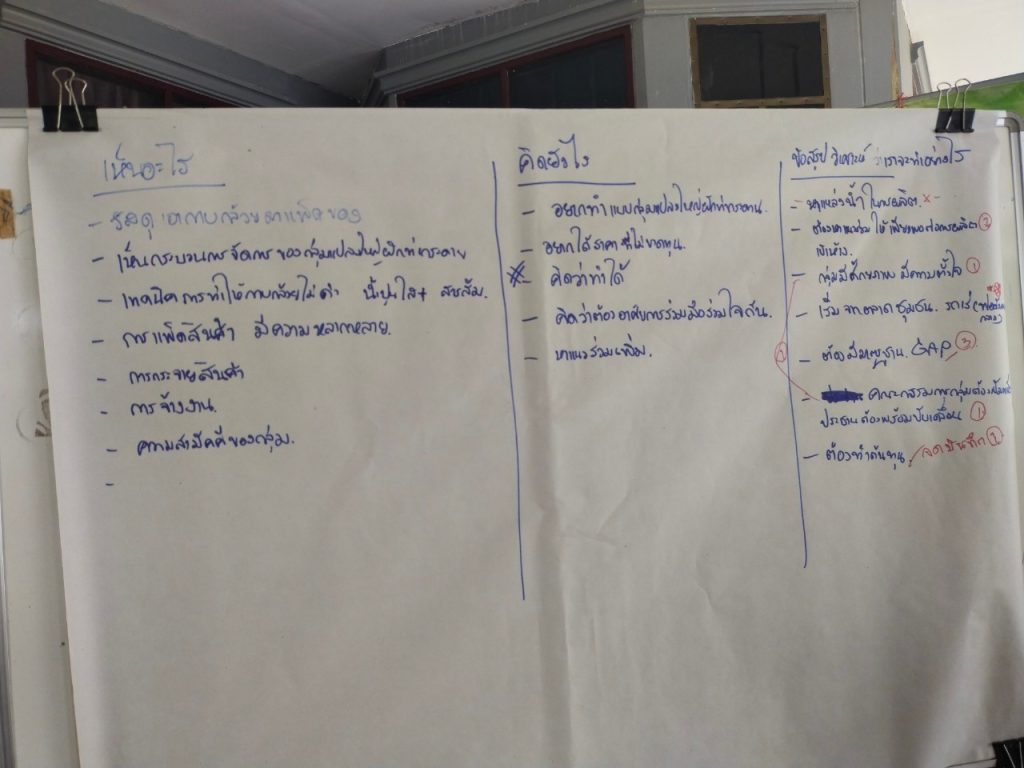 เห็นอะไร
- วัสดุ เอากาบกล้วยมาแพ็คของ
- เห็นกระบวนการจัดการของกลุ่มแปลงใหญ่ผักท่ากระดาน
- เทคนิคการทำให้กาบกล้วยไม่ดำ น้ำปูนใส + สารส้ม.
- การแพ็คสินค้า มีความหลากหลาย.
- การกระจายสินค้า
- การจ้างงาน.
- ความสามัคคีของกลุ่ม.
-
คิดยังไง
- อยากทำแบบกลุ่มแปลงใหญ่ผักท่ากระดาน.
- อยากได้ราคาที่ไม่ขาดทุน.
- คิดว่าทำได้
- คิดว่าต้องอาศัยการร่วมมือร่วมใจกัน.
- หาแนวร่วมเพิ่ม.
ข้อสรุป วิเคราะห์ ว่าเราจะทำอย่างไร
- หาแหล่งน้ำในการผลิต. x -
- ต้องหาแนวร่วม ให้เพียงพอต่อการผลิต ②
เข้าห้าง.
- กลุ่มมีศักยภาพ มีความตั้งใจ ①
- เริ่มจากตลาดชุมชน. รถเร่
- ต้องมีมาตรฐาน. GAP ③
①
- คณะกรรมการกลุ่มต้อง
ประธานต้องพร้อมขับเคลื่อน ①
- ต้องทำต้นทุน จดบันทึก ①